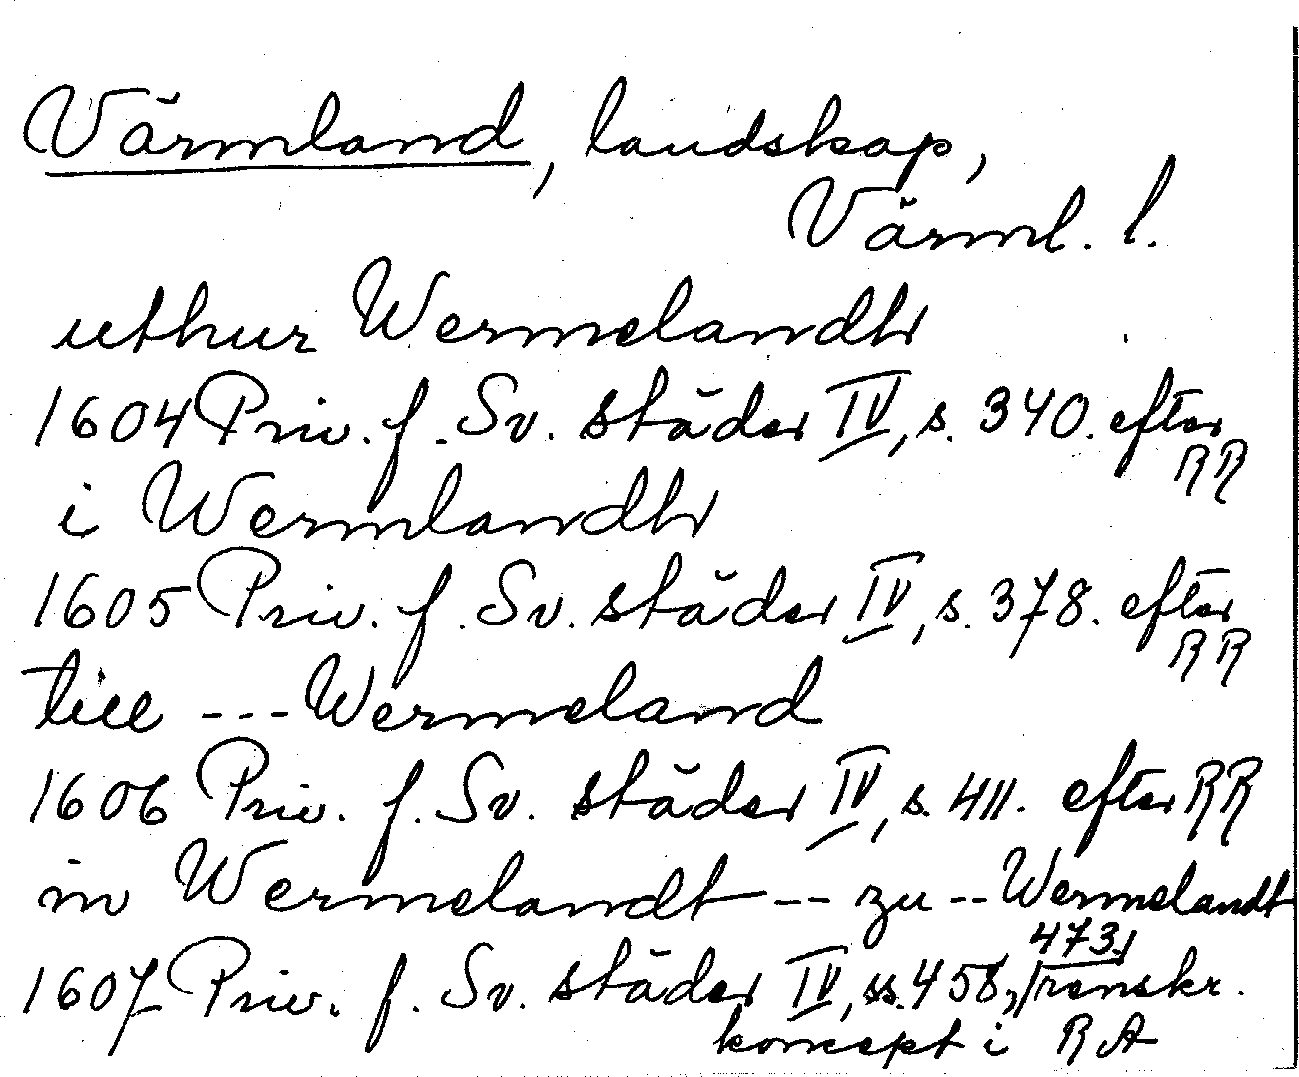 Värmland, landskap,
Värml. l.
uthur Wermelandh
1604 Priv. f. Sv. städer IV, s. 340. efter
RR
i Wermlandh
1605 Priv. f. Sv. städer IV, s. 378. efter
RR
till --- Wermeland
1606 Priv. f. Sv. städer IV, s. 411. efter RR
in Wermelandt --- zu -- Wermelandt
473,
1607 Priv. f. Sv. städer IV, ss. 458, renskr.
koncept i RA